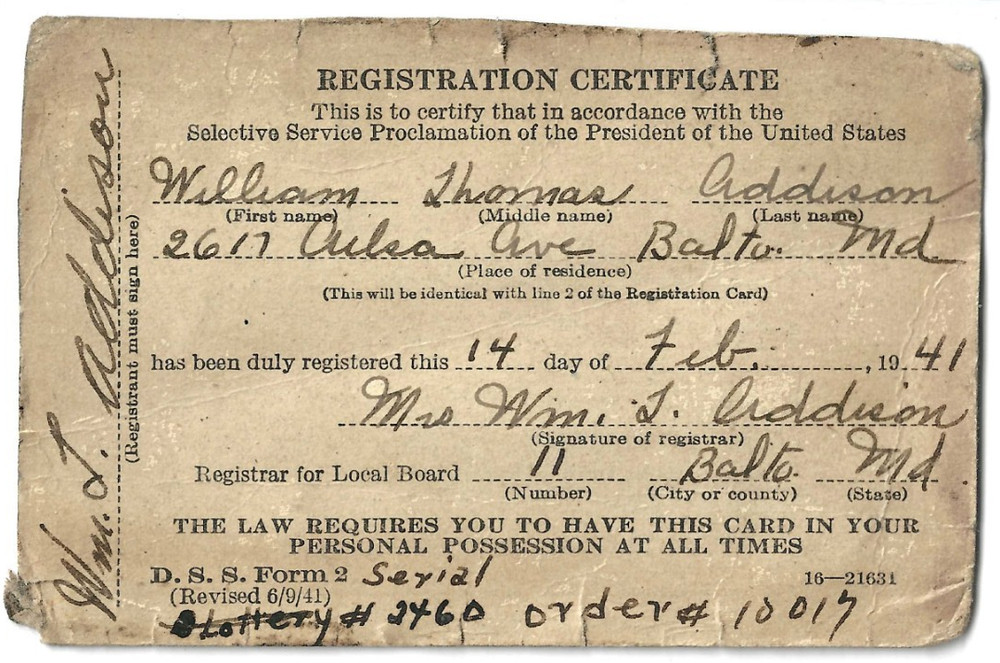 REGISTRATION CERTIFICATE
This is to certify that in accordance with the
Selective Service Proclamation of the President of the United States
William Thomas Addison
(First name) (Middle name) (Last name)
2617 Ailsa Ave Balto. Md
(Place of residence)
(This will be identical with line 2 of the Registration Card)
has been duly registered this 14 day of Feb. , 1941
Mrs Wm. T. Addison
(Signature of registrar)
Registrar for Local Board 11 Balto. Md
(Number) (City or county) (State)
THE LAW REQUIRES YOU TO HAVE THIS CARD IN YOUR
PERSONAL POSSESSION AT ALL TIMES
D. S. S. Form 2 Serial 16—21631
(Revised 6/9/41)
Lottery # 2460 Order # 10017
Wm. T. Addison
(Registrant must sign here)